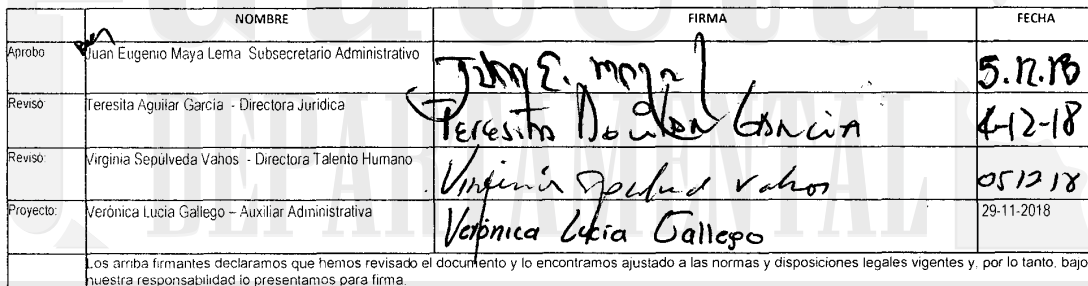 NOMBRE FIRMA FECHA
Aprobo Juan Eugenio Maya Lema Subsecretario Administrativo Juan E. Maya 5.12.18
Revisó: Teresita Aguilar García - Directora Jurídica Teresita Aguilar García 4-12-18
Revisó: Virginia Sepúlveda Vahos - Directora Talento Humano Virginia Sepulved Vahos 051218
Proyecto: Verónica Lucía Gallego – Auxiliar Administrativa Verónica Lucía Gallego 29-11-2018
Los arriba firmantes declaramos que hemos revisado el documento y lo encontramos ajustado a las normas y disposiciones legales vigentes y, por lo tanto, bajo
nuestra responsabilidad lo presentamos para firma.
DEPARTAMENTAL